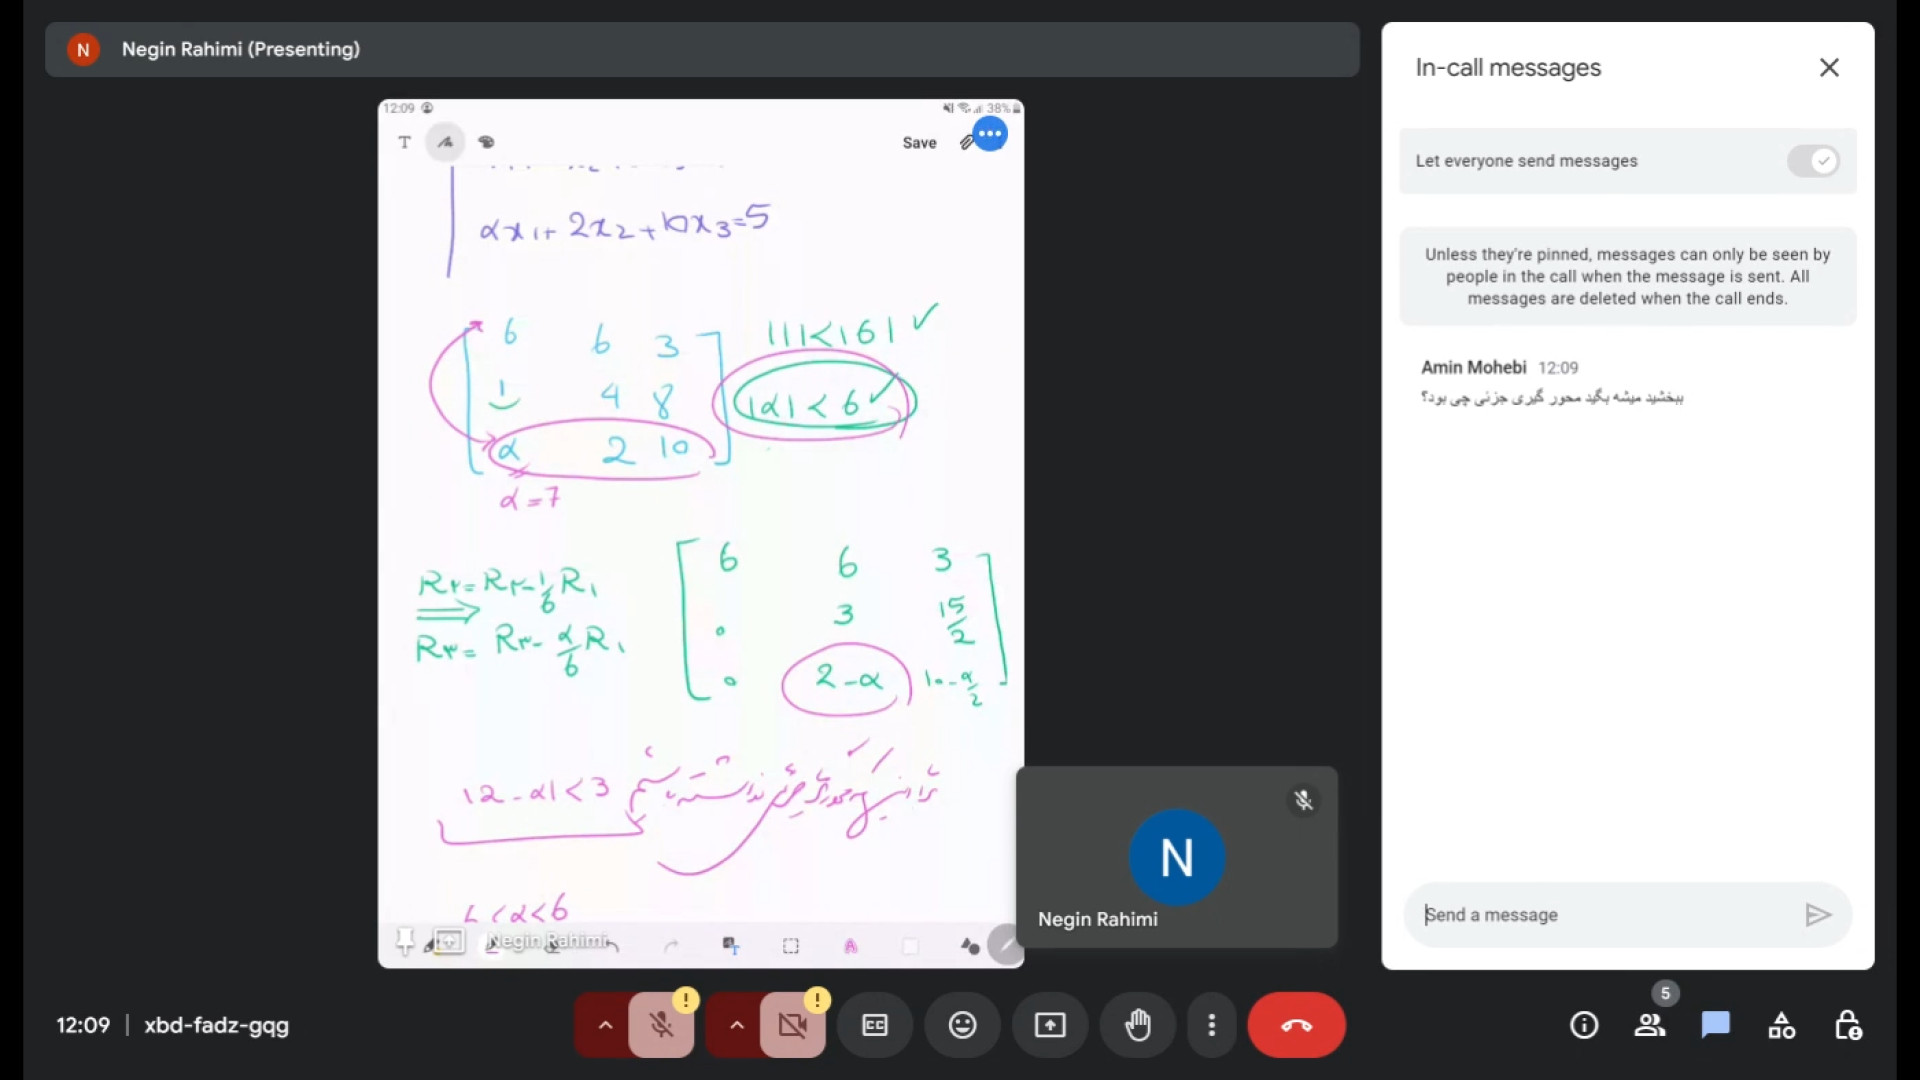 N
Negin Rahimi (Presenting)
12:09
38%
T
Save
αx1+ 2x2+10x3=5
6 6 3
1 4 8
α 2 10
|1|<|6| ✓
|α| < 6 ✓
α=7
R۲=R۲-1/6R۱
⟹
R۳= R۳- α/6R۱
6 6 3
۰ 3 15/2
۰ 2-α ۱۰-α/2
|2-α|<3
<α<6
Negin Rahimi
N
Negin Rahimi
In-call messages
Let everyone send messages
Unless they're pinned, messages can only be seen by
people in the call when the message is sent. All
messages are deleted when the call ends.
Amin Mohebi 12:09
ببخشید میشه بگید محور گیری جزئی چی بود؟
Send a message
12:09 | xbd-fadz-gqg
!
!
CC
5